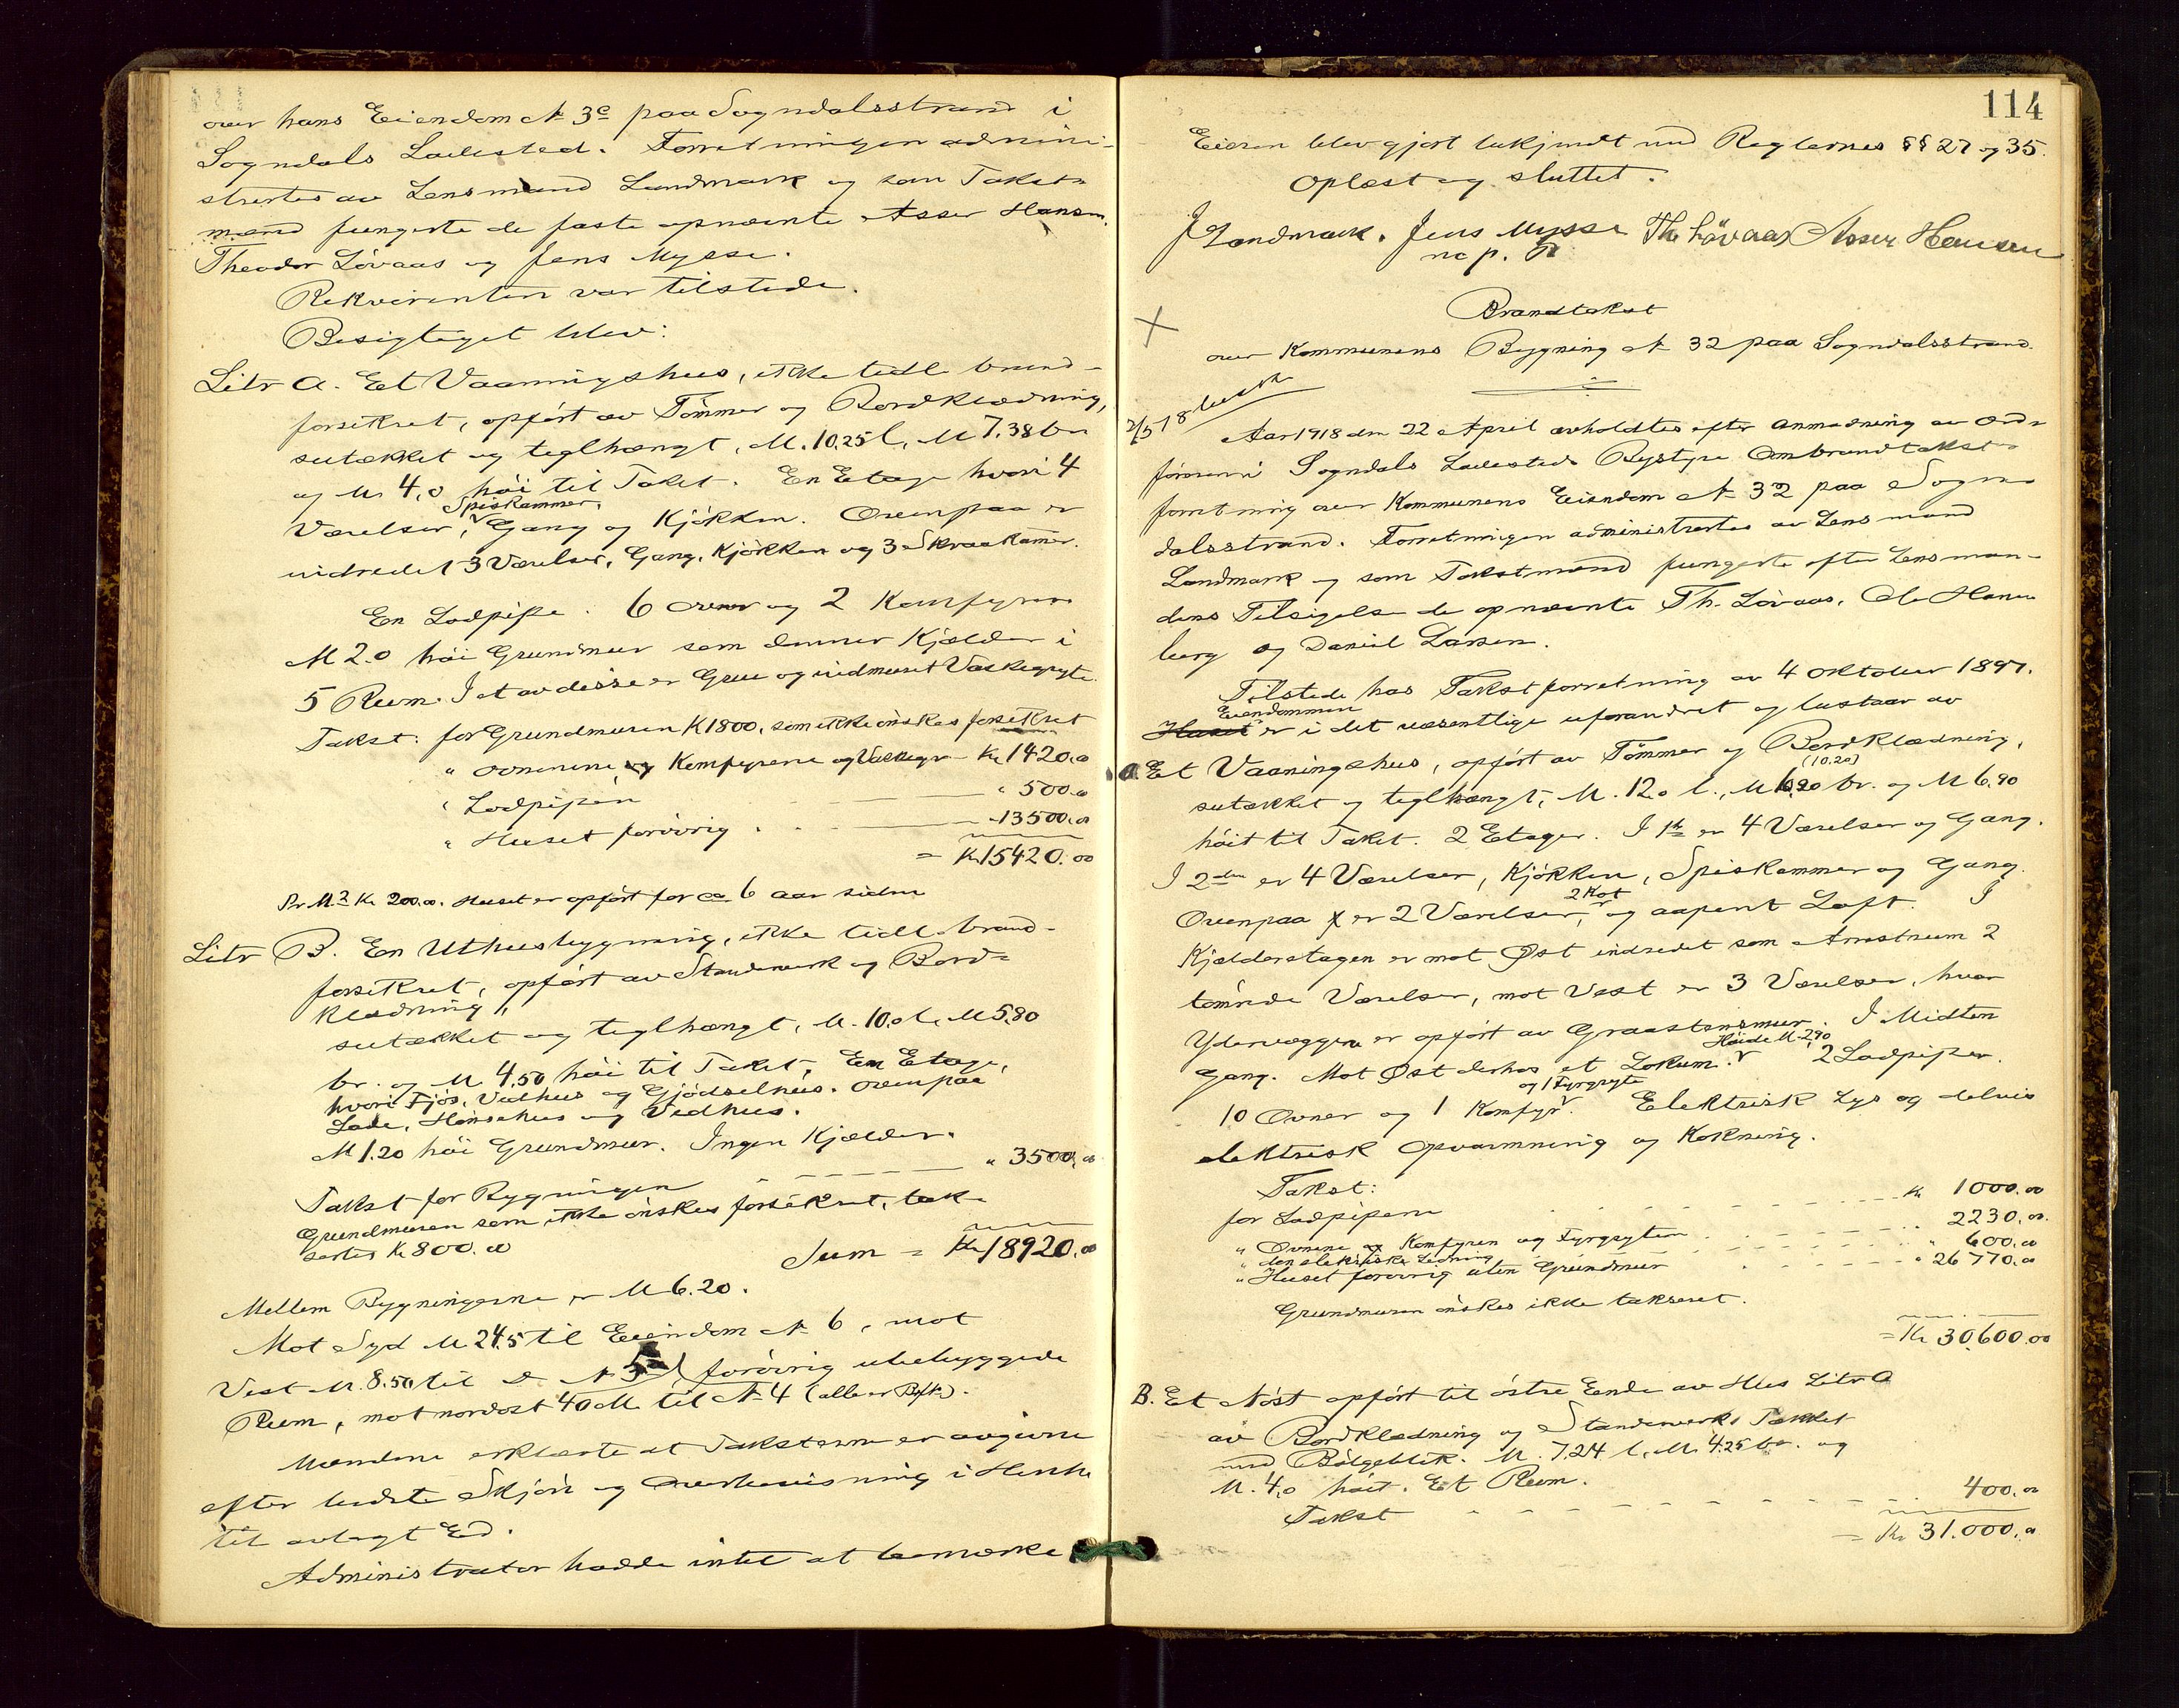 over hans Eiendom No 3c paa Sogndalsstrand i
Sogndals Ladested. Forretningen admini-
strertes av Lensmand Landmark og som Takst-
mænd fungerte de faste opnævnte Asser Hansen,
Theodor Lövaas og Jens Mysse.
Rekvirenten var tilstede.
Besigtiget blev:
Litr A. Et Vaaningshus, ikke tidl. brand-
forsikret, opfört av Tömmer og Bordklædning,
sutækket og teglhængt, M. 10.25 l, M 7.38 br
og M 4,0 höi til Taket. En Etage hvori 4
Spiskammer,
Værelser, Gang og Kjökken. Ovenpaa er
indredet 3 Værelser, Gang, Kjökken og 3 Skraakamer.
En Ladpipe. 6 Ovner og 2 Komfyrer
M 2.0 höi Grundmur som danner Kjælder i
5 Rum. I et av disse er Grue og indmuret Vaskegryte.
Takst: for Grundmuren K 1800, som ikke önskes forsikret
" Ovnene og Komfyrene og Vaskegr - Kr 1420.00
" Ladpipen " 500.00
" Huset forövrig - 13500.00
= Kr 15420.00
Pr M2 Kr 200.00. Huset er opfört for ca 6 aar siden
Litr B. En Uthusbygning, ikke tidl. brand-
forsikret, opfört av Standerverk og Bord-
klædning,
sutækket og teglhængt, M. 10.0 l, M 5.80
br. og M 4.50 höi til Taket, En Etage,
hvori Fjös, Vedhus og Gjödselhus. Ovenpaa
Lade, Hönsehus og Vedhus.
M 1.20 höi Grundmur. Ingen Kjælder.
Takst for Bygningen " 3500.00
Grundmuren som ikke önskes forsikret, tak-
sertes Kr 800.00 Sum = Kr 18920.00
Mellem Bygningerne er M 6.20.
Mot Syd M 24.5 til Eiendom No 6, mot
Vest M. 8.50 til Do No 5 forövrig ubebyggede
Rum, mot nordost 40 M til No 4 (alle er Bpt).
Mændene erklærte at Taksterne er avgivne
efter bedste Skjön og Overbevisning i Henh.
til avlagt Ed.
Administrator hadde intet at bemærke
114
Eieren blev gjort bekjendt med Reglernes §§ 27 og 35.
Oplæst og sluttet.
J Landmark. Jens Mysse Th Lövaas Asser Hansen
m p. P
Brandtakst
over Kommunens Bygning No 32 paa Sogndalsstrand.
2/5 18
Aar 1918 den 22 April avholdtes efter anmodning av Ord-
föreren i Sogndals Ladesteds Bystyre Ombrandtakst-
forretning over Kommunens Eiendom No 32 paa Sogn-
dalsstrand. Forretningen administrertes av Lensmand
Landmark og som Takstmænd fungerte efter Lensman-
dens Tilsigelse de opnævnte Th. Lövaas, Ole Hane-
berg og Daniel Larsen.
Tilstede has Takstforretning av 4 Oktober 1897.
Eiendommen
Huset er i det væsentlige uforandret og bestaar av
a Et Vaaningshus, opfört av Tömmer og Bordklædning,
(10.20)
sutækket og teglhængt, M. 12.0 l., M 10.20 br. og M 6.90
höit til Taket. 2 Etager. I 1ste er 4 Værelser og Gang.
I 2den er 4 Værelser, Kjökken, Spiskammer og Gang.
2 Kot
Ovenpaa er 2 Værelser, og aapent Loft. I
Kjælderetagen er mot Öst indredet som Arrestrum 2
tömrede Værelser, mot Vest er 3 Værelser, hvor
Ydervæggene er opfört av Graastensmur. I Midten
Höide M. 2.90
Gang. Mot Öst derhos et Lokum. 2 Ladpiper.
og 1 Fyrgryte
10 Ovner og 1 Komfyr. Elektrisk Lys og delvis
elektrisk Opvarmning og Kokning.
Takst:
for Ladpiperne Kr 1000.00
" Ovnene og Komfyren og Fyrgryten 2230.00.
" den elektriske Ledning " 600.00
" Huset forövrig uten Grundmur " 26770.00
Grundmuren önskes ikke takseret.
= Kr 30.600.00
B. Et Nöst opfört til östre Ende av Hus Litr A
av Bordklædning og Standerverk. Tækket
med Bölgeblik. M. 7.24 l, M. 4.25 br. og
M. 4,0 höit. Et Rum.
Takst 400.00
= Kr 31.000.00